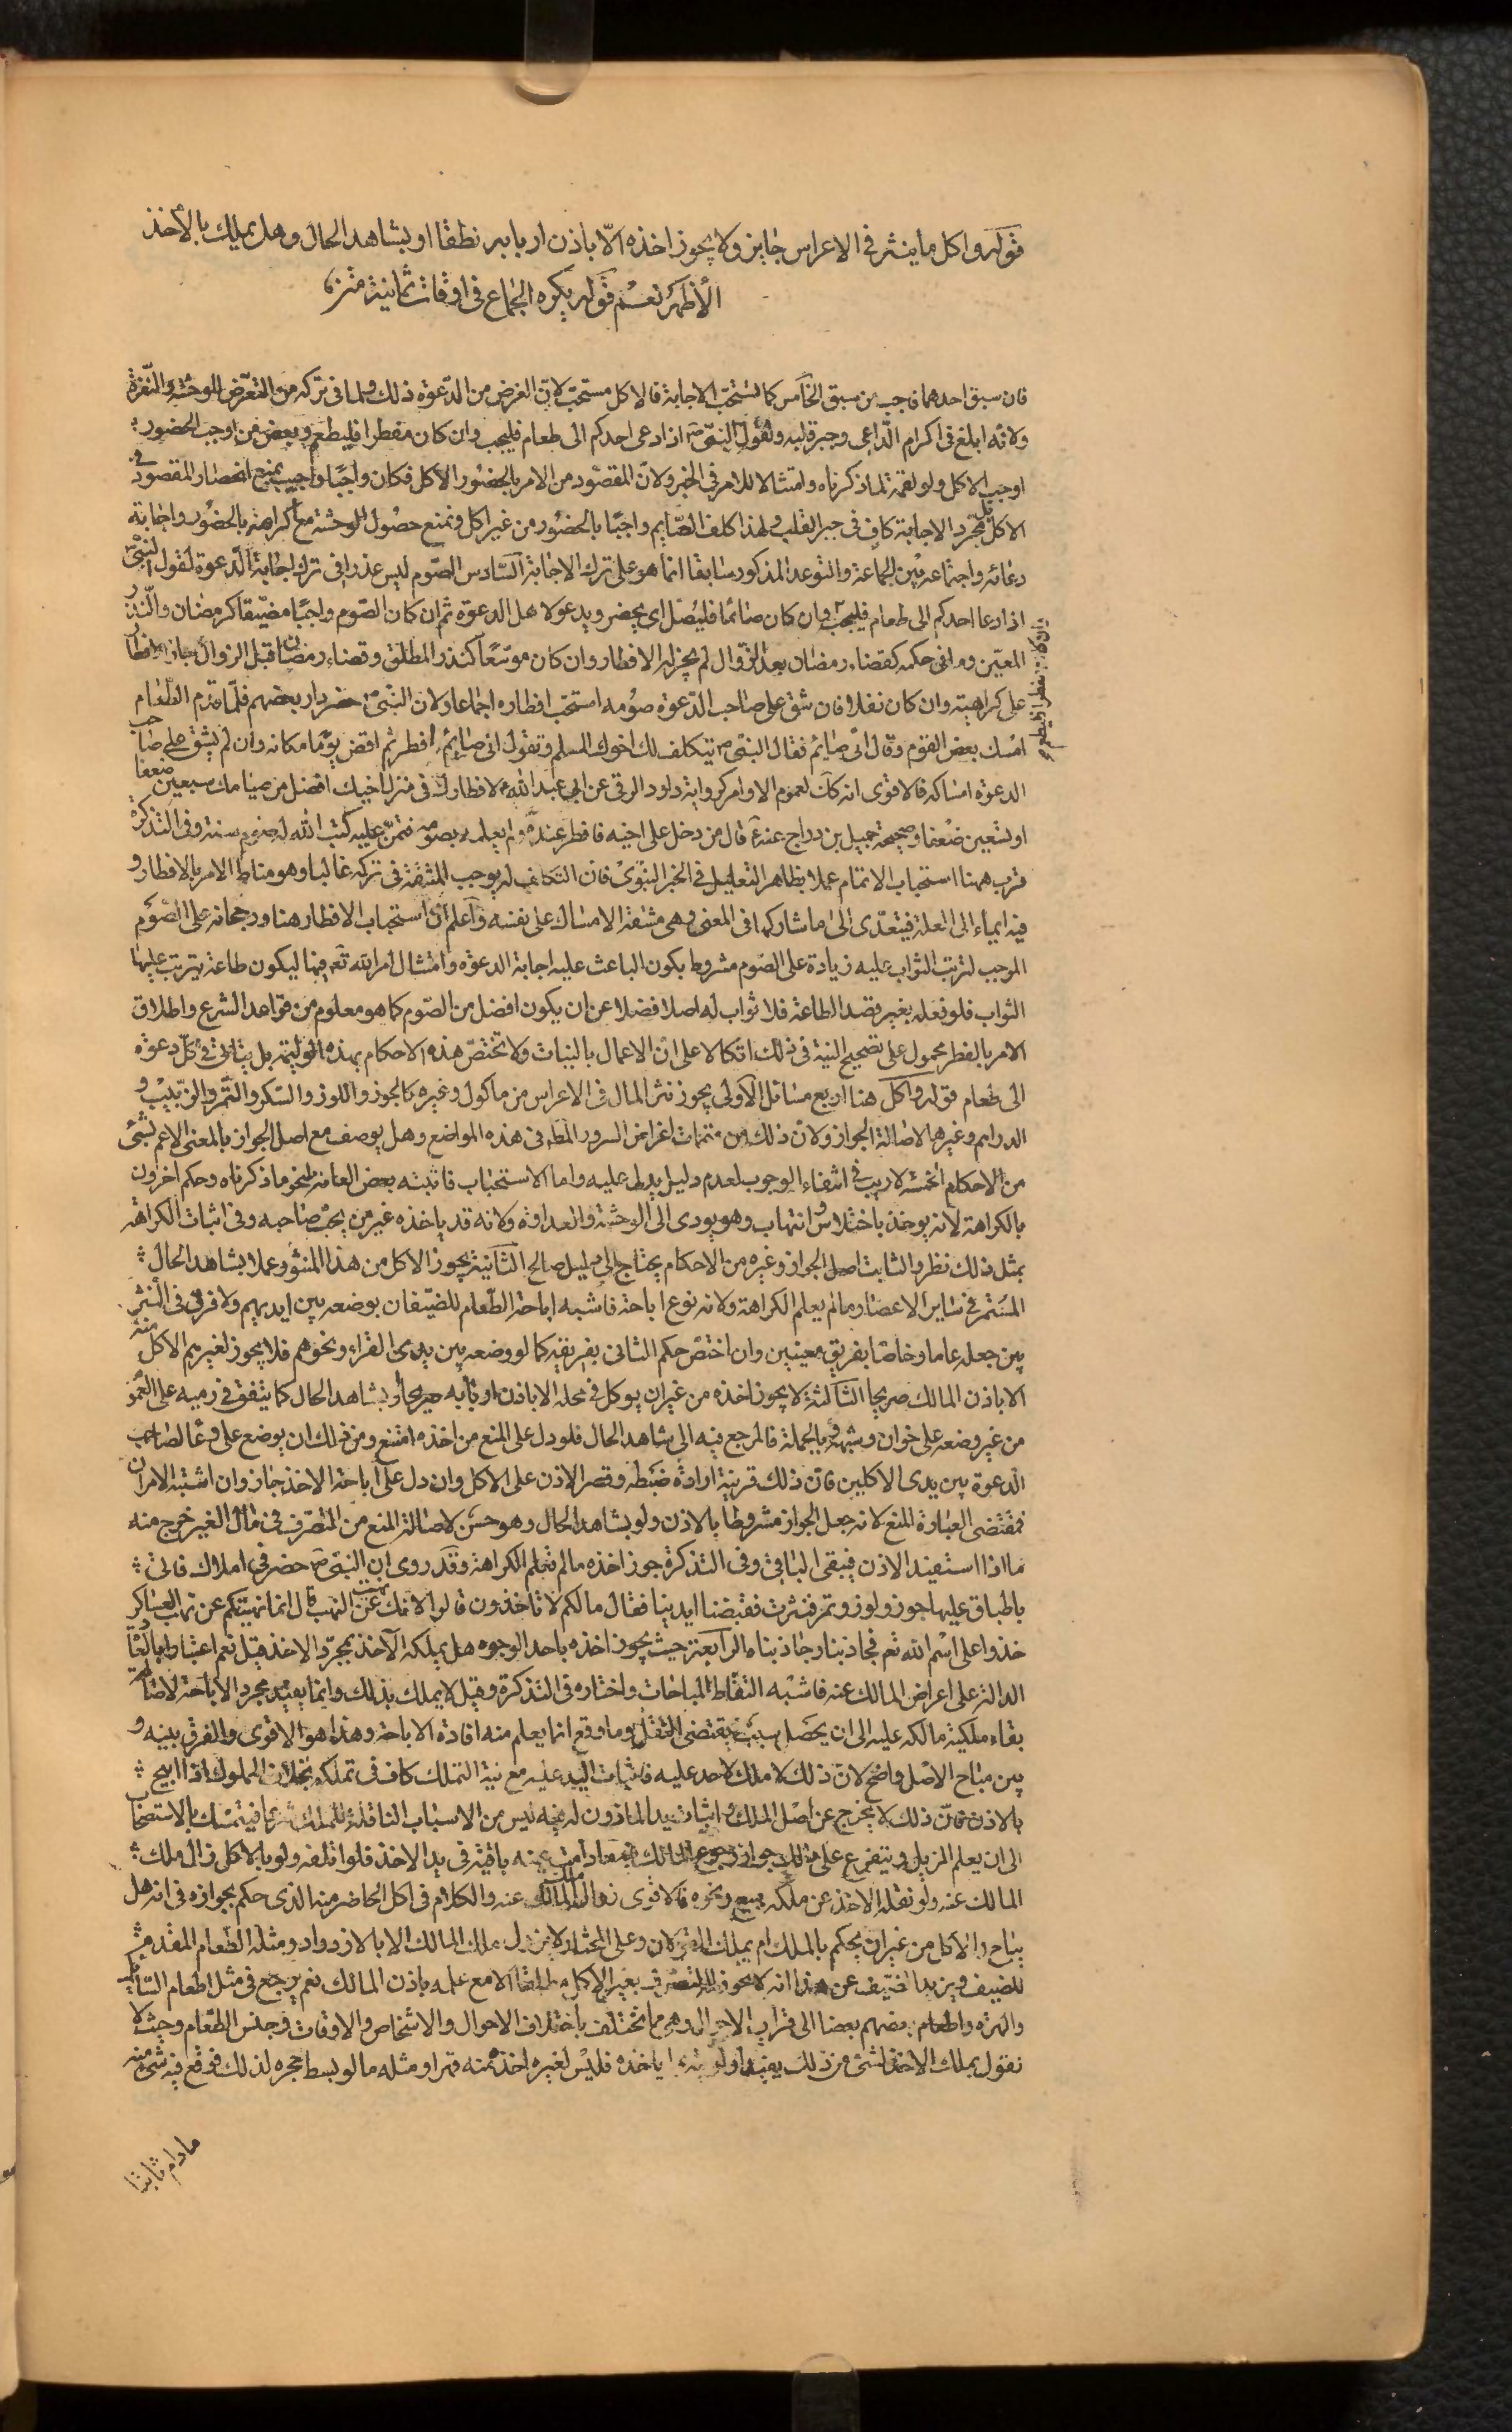 قوله واكل ما ينثر في الاعراس جايز ولا يجوز اخذه الّا باذن اربابه نطقا او بشاهد الحال وهل يملك بالأخذ
الأظهر نعم قوله يكره الجماع في اوقات ثمانية
فان سبق احدهما فاجب من سبق الخامس كما تستحبّ الاجابة فالاكل مستحبّ لانّ الغرض من الدّعوة ذلك ولما في تركه من التعرّض للوحشة والنّفرة
ولانّه ابلغ في اكرام الدّاعي وجبر قلبه ولقول النبيّ ص اذا دعى احدكم الى طعام فليجب وان كان مفطرا فليطعم وبعض من اوجب الحضور
اوجب الاكل ولو لقمة لما ذكرناه وامتثالا للامر في الخبر ولانّ المقصود من الامر بالحضور الاكل فكان واجبًا واجيب بمنع انحصار المقصود في
الاكل بل مجّرد الاجابة كاف في جبر القلب ولهذا كلف الصّايم واجبًا بالحضور من غير اكل ونمنع حصول الوحشة مع اكرامه بالحضور واجابة
دعائه واجتماعه بين الجماعة والتوعد المذكور سابقا انما هو على ترك الاجابة السّادس الصّوم ليس عذرا في ترك اجابة الدّعوة لقول النبيّ ص
اذا دعا احدكم الى طعام فليجب وان كان صائمًا فليصل اي يحضر ويدعو لاهل الدعوة ثم ان كان الصّوم واجبًا مضيّقا كرمضان والنّذر
المعيّن وما في حكمه كقضاء رمضان بعد الزّوال لم يجز له الافطار وان كان موسّعًا كنذر المطلق وقضاء رمضان قبل الزوال جاز
على كراهية وان كان نفلا فان شق على صاحب الدّعوة صومه استحبّ افطاره اجماعا ولان النبيّ ص حضر دار بعضهم فلّما قدم الطّعام
امسك بعض القوم وقال انّي صايم فقال النبّي ص يتكلف لك اخوك المسلم وتقول اني صايم افطر ثم اقض يومًا مكانه وان لم يشق على صاحب
الدعوة امساكه فالاقوى انه كك لعموم الاوامر كرواية داود الرقي عن ابي عبد الله ع لافطارك في منزل اخيك افضل من صيامك سبعين ضعفا
او تسعين ضعفا وصحيحة جميل بن دراج عنه ع قال من دخل على اخيه فافطر عنده ولم يعلمه بصومه فيمنّ عليه كتب الله له صوم سنة وفي التذكرة
قرب ههنا استحباب الاتمام عملا بظاهر التعليل في الخبر النبوّي فان التكلف له يوجب المشقة في تركه غالبا وهو مناط الامر بالافطار و
فيه ايماء الى العلة فيتعدّى الى ما شاركها في المعنى وهي مشقة الامساك على نفسه واعلم انّ استحباب الافطار هنا ورجحانه على الصّوم
الموجب لترتب الثواب عليه زيادة على الصّوم مشروط بكون الباعث عليه اجابة الدعوة وامتثال امر الله تع فيها ليكون طاعة يترتب عليها
الثواب فلو فعله بغير قصد الطاعة فلا ثواب له اصلا فضلا عن ان يكون افضل من الصّوم كما هو معلوم من قواعد الشرع واطلاق
الامر بالفطر محمول على تصحيح النية في ذلك اتكالا على انّ الاعمال بالنيات ولا تختصّ هذه الاحكام بهذه الوليمة بل يتاتّى في كلّ دعوة
الى طعام قوله واكل هنا اربع مسائل الاولى يجوز نثر المال في الاعراس من ماكول وغيره كالجوز واللوز والسّكر والتّمر والزّبيب و
الدراهم وغيرها لاصالة الجواز ولانّ ذلك من متممات اغراض السرور المطلوبة في هذه المواضع وهل يوصف مع اصل الجواز بالمعنى الاعم بشئ
من الاحكام الخمسة لا ريب في انتفاء الوجوب لعدم دليل يدل عليه واما الاستحباب فاثبته بعض العامة لنحو ما ذكرناه وحكم اخرون
بالكراهة لانه يوخذ باختلاس وانتهاب وهو يودي الى الوحشة والعداوة ولانه قد ياخذه غير من يحبّ صاحبه وفي اثبات الكراهة
بمثل ذلك نظر والثابت اصل الجواز وغيره من الاحكام يحتاج الى دليل صالح الثّانية يجوز الاكل من هذا المنثور عملا بشاهد الحال
المستمر في ساير الاعصار ما لم يعلم الكراهة ولانه نوع اباحة فاشبه اباحة الطّعام للضيّفان بوضعه بين ايديهم ولا فرق في النّثر
بين جعله عاما وخاصّا بفريق معينين وان اختصّ حكم الثاني بفريقه كما لو وضعه بين يدي القراء ونحوهم فلا يجوز لغيرهم الاكل منه
الا باذن المالك صريحا الثّالثة لا يجوز اخذه من غير ان يوكل في محله الا باذن اربابه صريحا او بشاهد الحال كما يتفق في رميه على العمو
من غير وضعه على خوان وشبهه وبالجملة فالمرجع فيه الى شاهد الحال فلو دل على المنع من اخذه امتنع ومن ذلك ان يوضع على خوان لصاحب
الدعوة بين يدى الاكلين فان ذلك قرينة ارادة ضبطه وقصر الاذن على الاكل وان دل على اباحة الاخذ جاز وان اشتبه الامران
فمقتضى العبارة المنع لانه جعل الجواز مشروطا بالاذن ولو بشاهد الحال وهو حسن لاصالة المنع من التصرف في مال الغير خرج منه
ما اذا استفيد الاذن فيبقى الباقي وفي التذكرة جوز اخذه ما لم تعلم الكراهة وقد روى ان النبيّ ص حضر في املاك فاتى
باطباق عليها جوز ولوز وتمر فنثرت فقبضنا ايدينا فقال ما لكم لا تاخذون قالوا لانك نهيت عن النهب قال انما نهيتكم عن نهب العساكر
خذوا على اسم الله ثم فجاذبنا وجاذبناه الرّابعة حيث يجوز اخذه باحد الوجوه هل يملكه الآخذ بمجرّد الاخذ قيل نعم اعتبارا بالعادة
الدالة على اعراض المالك عنه فاشبه التقاط المباحات واختاره في التذكرة وقيل لا يملك بذلك وانما يفيد مجرد الاباحة لاصالة
بقاء ملكية مالكه عليه الى ان يحصل سبب يقتضى النقل وما وقع انما يعلم منه افادة الاباحة وهذا هو الاقوى والفرق بينه و
بين مباح الاصل واضح لانّ ذلك لا ملك لاحد عليه فاثبات اليد عليه مع نية التملك كاف في تملكه بخلاف المملوك اذا ابيح
بالاذن فانّ ذلك لا يخرج عن اصل الملك واثبات يد الماذون له فيه ليس من الاسباب الناقلة للملك شرعا فيتمسّك بالاستصحاب
الى ان يعلم المزيل ويتفرع على ذلك جواز رجوع المالك فيه ما دامت عينه باقية في يد الاخذ فلو اتلفه ولو بالاكل زال ملك
المالك عنه ولو نقله الاخذ عن ملكه ببيع ونحوه فالاقوى زوال ملك المالك عنه والكلام في اكل الحاضر منه الذى حكم بجوازه في انه هل
يباح له الاكل من غير ان يحكم بالملك ام يملك القولان وعلى المختار لا يزول ملك المالك الا بالازدراد ومثله الطّعام المقدم
للضيف ويزيد الضّيف عن هذا انه لا يجوز له التصرف بغير الاكل مطلقا الا مع علمه باذن المالك نعم يرجع في مثل اطعام السّائل
والهرّه واطعام بعضهم بعضا الى قراين الاحوال وهي مما تختلف باختلاف الاحوال والاشخاص والاوقات وجنس الطّعام وحيث لا
نقول بملك الاخذ لشئ من ذلك يفيد اولويّة ما ياخذه فليس لغيره اخذه منه قهرا ومثله ما لو بسط حجره لذلك فوقع فيه شئ منه
مادام ثابتا